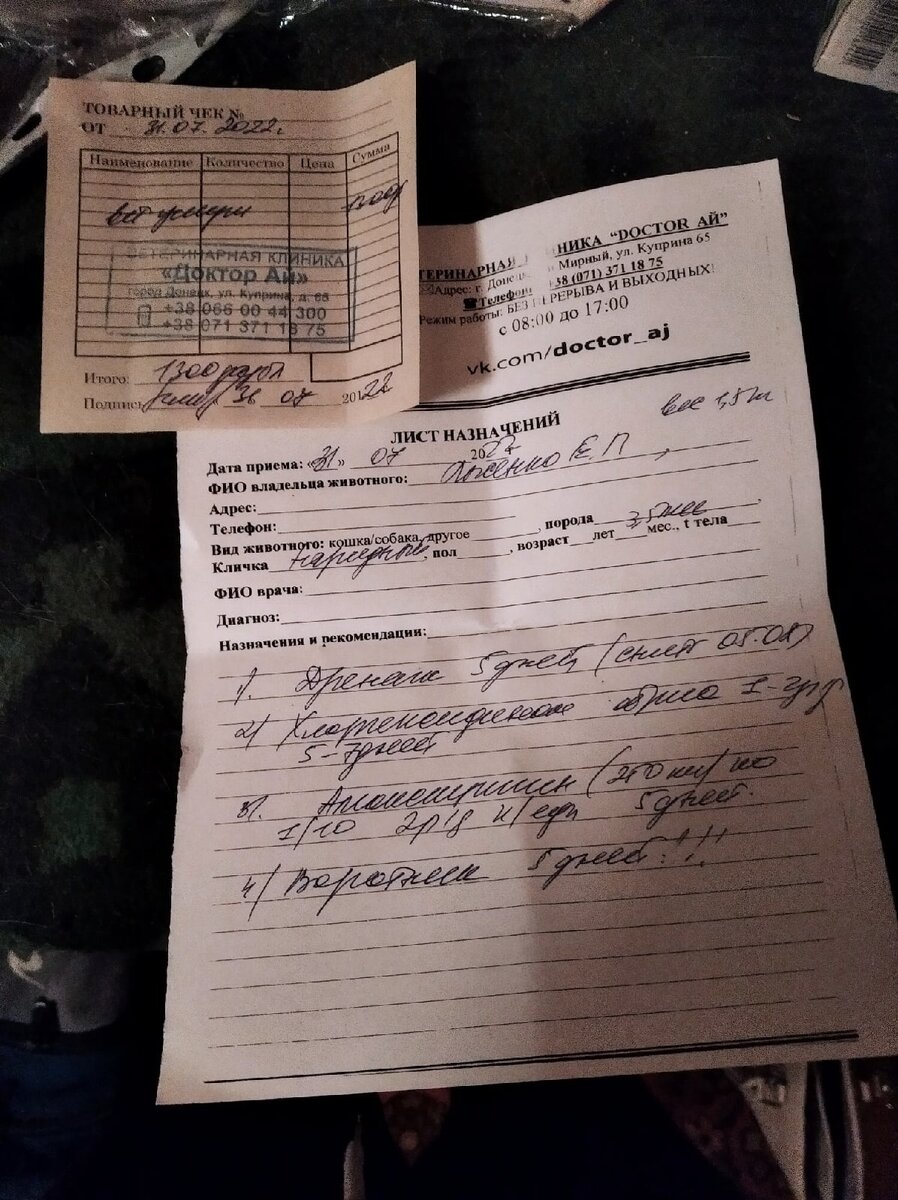 ТОВАРНЫЙ ЧЕК №
ОТ 31.07.2022г.
Наименование Количество Цена Сумма
вет услуги 1300р
ВЕТЕРИНАРНАЯ КЛИНИКА
«Доктор Ай»
город Донецк, ул. Куприна, д. 65
+38 066 00 44 300
+38 071 371 18 75
Итого: 1300 рубл
Подпись 07 2022
ТЕРИНАРНАЯ НИКА "DOCTOR АЙ"
Адрес: г. Донецк, Мирный, ул. Куприна 65
Телефон +38 (071) 371 18 75
Режим работы: БЕЗ ПЕРЕРЫВА И ВЫХОДНЫХ!
с 08:00 до 17:00
vk.com/doctor_aj
вес 1,5 кг
ЛИСТ НАЗНАЧЕНИЙ
Дата приема: «31» 07 2022
ФИО владельца животного: Е.П
Адрес:
Телефон:
Вид животного: кошка/собака, другое , порода
Кличка , пол , возраст лет 3,5 мес мес., t тела
ФИО врача:
Диагноз:
Назначения и рекомендации:
1). Дренаж 5 дней (снять 05.08)
2/ Хлоргексидином 1-2р/д
5-7 дней
3). Амоксициллин (250 мг) по
1/10 2р/д 5 дней.
4/ Воротник 5 дней!!!